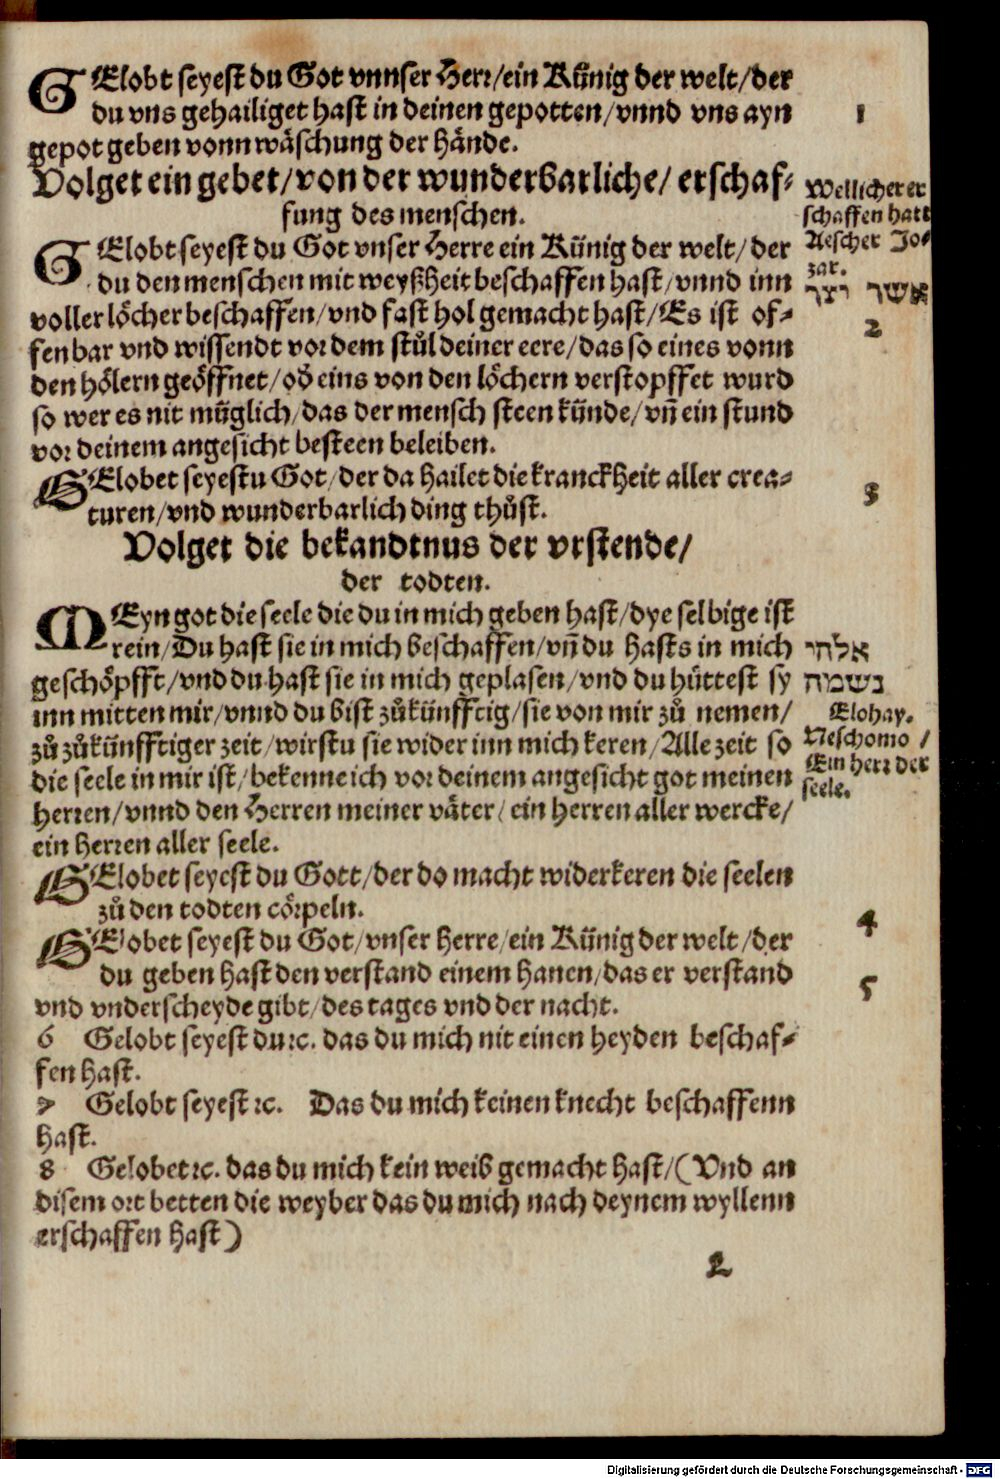 GElobt seyest du Got vnnser Herr/ein Künig der welt/der
du vns gehailiget hast in deinen gepotten/vnnd vns ayn
gepot geben vonn wäschung der hände.
1
Volget ein gebet/von der wunderbarliche/ erschaf-
fung des menschen.
Wellicher er
schaffen hatt
Aescher Jo-
zar.
אשר יצר
GElobt seyest du Got vnser Herre ein Künig der welt/ der
du den menschen mit weyßheit beschaffen hast/vnnd inn
voller löcher beschaffen/vnd fast hol gemacht hast/Es ist of-
fenbar vnd wissendt vor dem stůl deiner eere/das so eines vonn
den hölern geöffnet/od̓ eins von den löchern verstopffet wurd
so wer es nit müglich/das der mensch steen künde/vñ ein stund
vor deinem angesicht besteen beleiben.
2
GElobet seyestu Got/der da hailet die kranckheit aller crea-
turen/vnd wunderbarlich ding thůst.
3
Volget die bekandtnus der vrstende/
der todten.
MEyn got die seele die du in mich geben hast/dye selbige ist
rein/Du hast sie in mich beschaffen/vñ du hasts in mich
geschöpfft/vnd du hast sie in mich geplasen/vnd du hüttest sy
inn mitten mir/vnnd du bist zůkünfftig/sie von mir zů nemen/
zů zůkünfftiger zeit/wirstu sie wider inn mich keren/Alle zeit so
die seele in mir ist/bekenne ich vor deinem angesicht got meinen
herren/vnnd den Herren meiner väter/ein herren aller wercke/
ein herren aller seele.
אלהי
נשמה
Elohay.
Neschomo /
Ein herr der
seele.
GElobet seyest du Gott/der do macht widerkeren die seelen
zů den todten cörpeln.
4
GElobet seyest du Got/vnser herre/ein Künig der welt/der
du geben hast den verstand einem hanen/das er verstand
vnd vnderscheyde gibt/des tages vnd der nacht.
5
6 Gelobt seyest du ꝛc. das du mich nit einen heyden beschaf-
fen hast.
7 Gelobt seyest ꝛc. Das du mich keinen knecht beschaffenn
hast.
8 Gelobet ꝛc. das du mich kein weib gemacht hast/(Vnd an
disem ort betten die weyber das du mich nach deynem wyllenn
erschaffen hast)
Digitalisierung gefördert durch die Deutsche Forschungsgemeinschaft - DFG